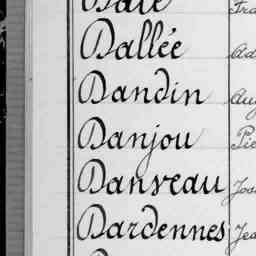 Dallée Ad
Dandin Aug
Danjou Pie
Danveau Jos
Dardennes Jea